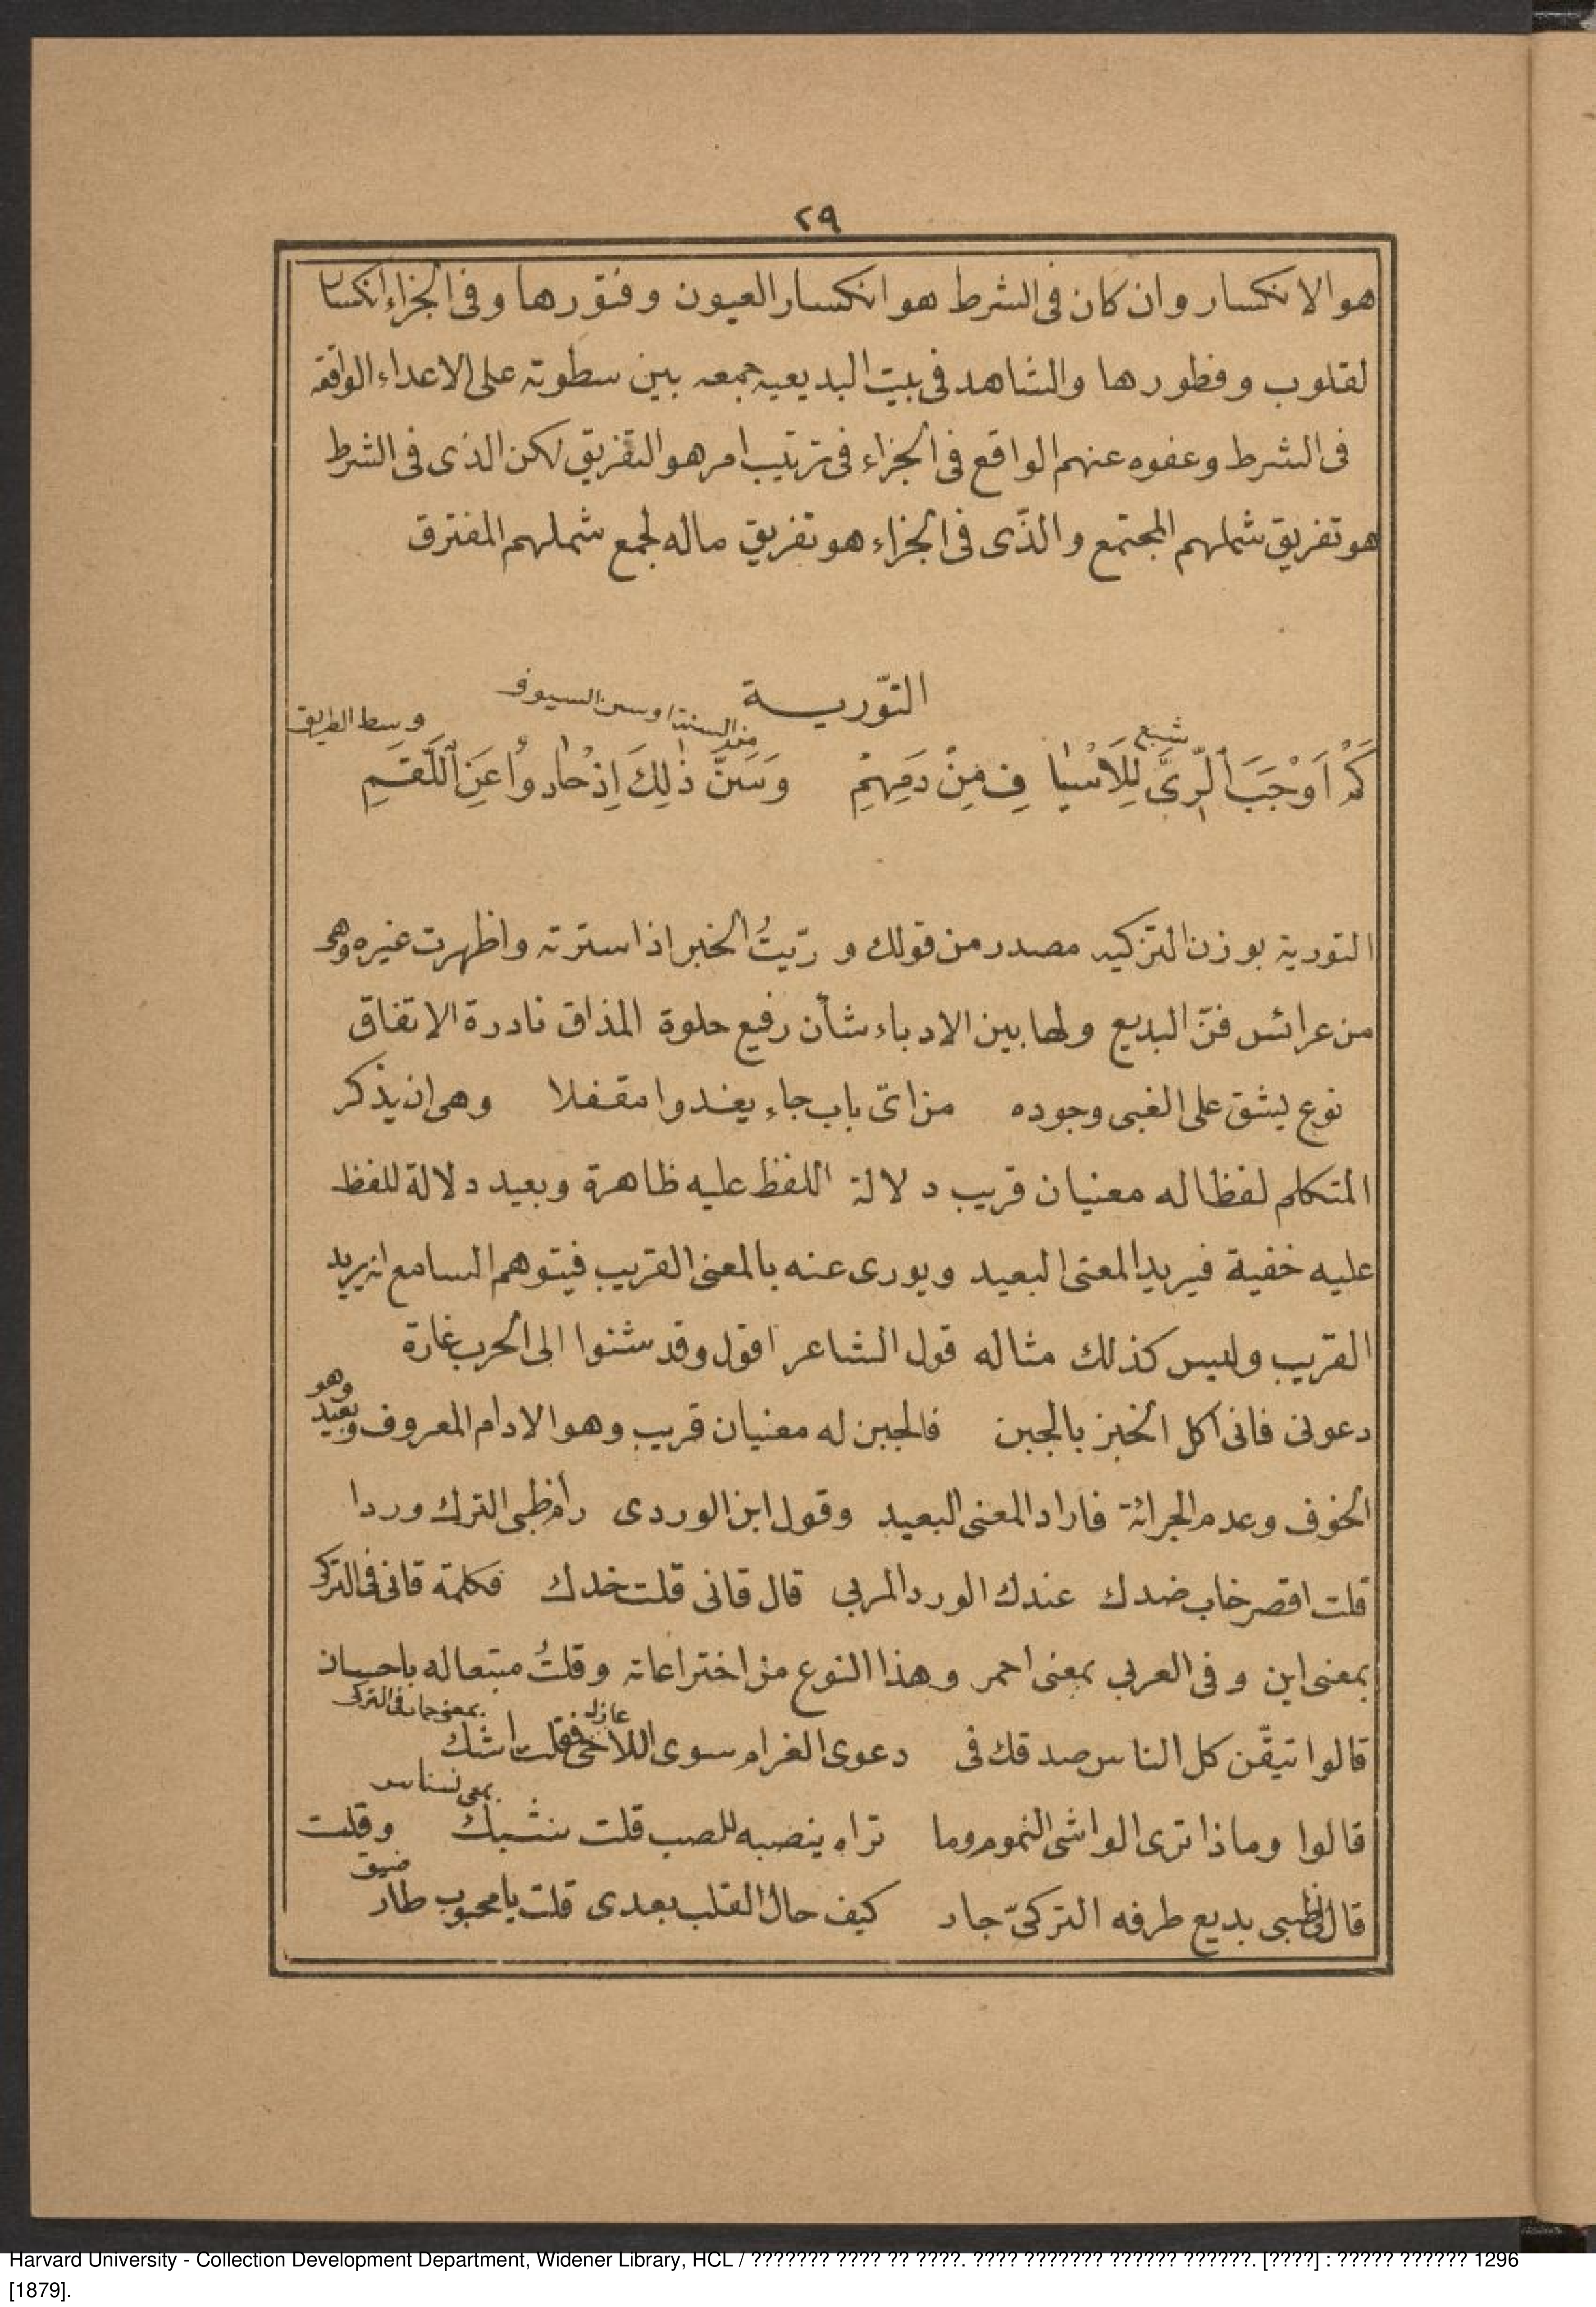 ٢٩
هو الانكسار وان كان فى الشرط هو انكسار العيون وفتورها وفى الجزاء انكسار
لقلوب وفطورها والشاهد فى بيت البديعيه جمعه بين سطوته على الاعداء الواقعه
فى الشرط وعفوه عنهم الواقع فى الجزاء فى ترتيب امر هو التفريق لكن الذى فى الشرط
هو تفريق شملهم المجتمع والذّى فى الجزاء هو تفريق ماله لجمع شملهم المفترق
التّورية
شبع
من السنة او سن السيوف
وسط الطريق
كَمْ اَوْجَبَ الرِّىَّ لِلْاَسْيَا فِ مِنْ دَمِهِمْ وَسَنَّ ذٰلِكَ اِذْ حَادُوا عَنِ اللَّقَمِ
التورية بوزن التزكيه مصدر من قولك وريّتُ الخبر اذا سترته واظهرت غيره وهى
من عرائس فنّ البديع ولها بين الادباء شأن رفيع حلوة المذاق نادرة الاتفاق
نوع يشق على الغبى وجوده من اىّ باب جاء يغدوا مقفلا وهى ان يذكر
المتكلم لفظا له معنيان قريب دلالة اللفظ عليه ظاهرة وبعيد دلالة للفظ
عليه خفية فيريد المعنى البعيد ويورى عنه بالمعنى القريب فيتوهم السامع انه يريد
القريب وليس كذلك مثاله قول الشاعر اقول وقد شنوا الى الحرب غارة
دعونى فانى اكل الخبز بالجبن فالجبن له معنيان قريب وهو الادام المعروف وبعيد وهو
الخوف وعدم الجرائة فاراد المعنى البعيد وقول ابن الوردى رام ظبى الترك وردا
قلت اقصر خاب ضدك عندك الورد المربى قال قانى قلت خدك فكلمة قانى فى التركى
بمعنى اين وفى العربى بمعنى احمر وهذا النوع من اختراعاته وقلتُ متبعا له باحسان
عازل
بمعنى حمار فى التركى
قالوا تيقّن كل الناس صدقك فى دعوى الغرام سوى اللاحى فقلت اشك
بمعنى نسناس
قالوا وماذا ترى الواشى النموم وما تراه ينصبه للصب قلت بشبك وقلت
ضيق
قال لى ظبى بديع طرفه التركىّ جار كيف حال القلب بعدى قلت يا محبوب طار
Harvard University - Collection Development Department, Widener Library, HCL / ??????? ???? ?? ????. ???? ??????? ?????? ??????. [????] : ????? ?????? 1296
[1879].